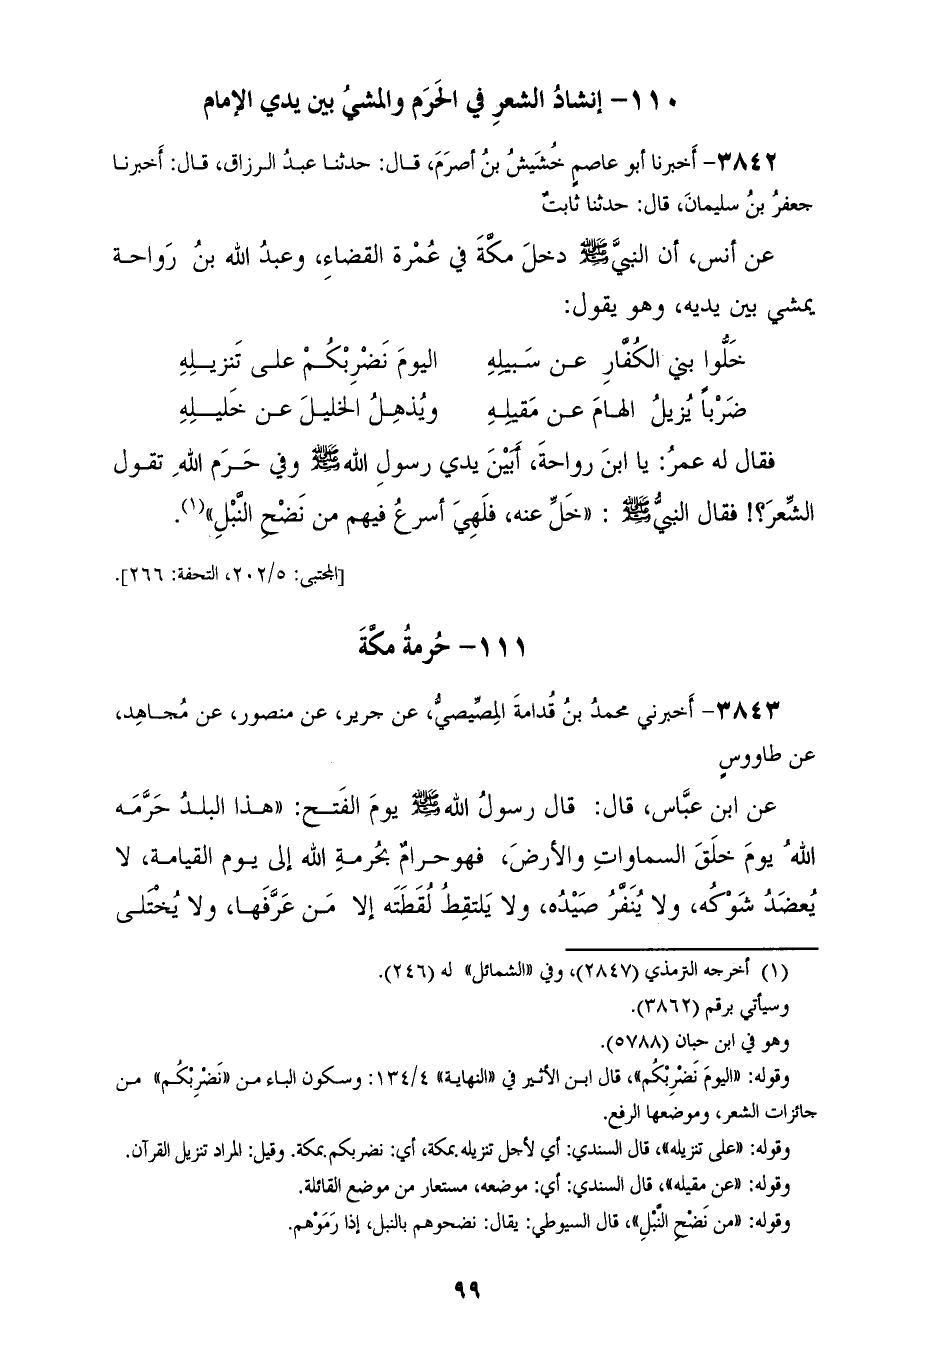 ١١٠- إنشادُ الشعرِ في الحَرَم والمشيُ بين يدي الإمام
٣٨٤٢- أَخبرنا أبو عاصمٍ خُشَيشُ بنُ أصرَمَ، قـال: حدثنـا عبدُ الـرزاق، قـال: أَخبرنـا
جعفرُ بنُ سليمانَ، قال: حدثنا ثابتٌ
عن أنس، أن النبيَّ ﷺ دخلَ مكَّةَ في عُمْرة القضاءِ، وعبدُ الله بنُ رَواحـة
يمشي بين يديه، وهو يقول:
خَلُّوا بني الكُفَّارِ عـن سَـبيلِهِ اليومَ نَضْرِبْكُـمْ علـى تَنزيـلِهِ
ضَرْباً يُزيلُ الهـامَ عـن مَقيلِـهِ ويُذهِـلُ الخليلَ عـن خَليـلِهِ
فقال له عمرُ: يا ابنَ رواحةَ، أَبَيْنَ يدي رسولِ الله ﷺ وفي حَـرَم اللهِ تقـول
الشِّعرَ؟! فقال النبيُّ ﷺ : «خَلِّ عنه، فلَهِيَ أسرعُ فيهم من نَضْحِ النَّبْلِ»(١).
[المجتبى: ٢٠٢/٥، التحفة: ٢٦٦].
١١١- حُرمةُ مكَّةَ
٣٨٤٣- أَخبرني محمدُ بنُ قُدامةَ المِصِّيصيُّ، عن جرير، عن منصور، عن مُجـاهِد،
عن طاووسٍ
عن ابن عبَّاس، قال: قال رسولُ الله ﷺ يومَ الفَتـح: «هـذا البلـدُ حَرَّمَـه
اللهُ يومَ خلَقَ السماواتِ والأرضَ، فهو حـرامٌ بحُرمةِ الله إلى يـوم القيامـة، لا
يُعضَدُ شَوْكُه، ولا يُنَفَّرُ صَيْدُه، ولا يَلتقِطُ لُقَطَتَه إلا مَـن عَرَّفَهـا، ولا يُخْتَلـى
(١) أخرجه الترمذي (٢٨٤٧)، وفي «الشمائل» له (٢٤٦).
وسيأتي برقم (٣٨٦٢).
وهو في ابن حبان (٥٧٨٨).
وقوله: «اليومَ نَضْرِبْكُم»، قال ابـن الأثـير في «النهاية» ١٣٤/٤: وسـكون البـاء مـن «نَضْرِبْكُـم» مـن
جائزات الشعر، وموضعها الرفع.
وقوله: «على تنزيله»، قال السندي: أي لأجل تنزيله بمكة، أي: نضربكم بمكة. وقيل: المراد تنزيل القرآن.
وقوله: «عن مقيله»، قال السندي: أي: موضعه، مستعار من موضع القائلة.
وقوله: «من نَضْحِ النَّبْلِ»، قال السيوطي: يقال: نضحوهم بالنبل، إذا رَمَوْهم.
٩٩